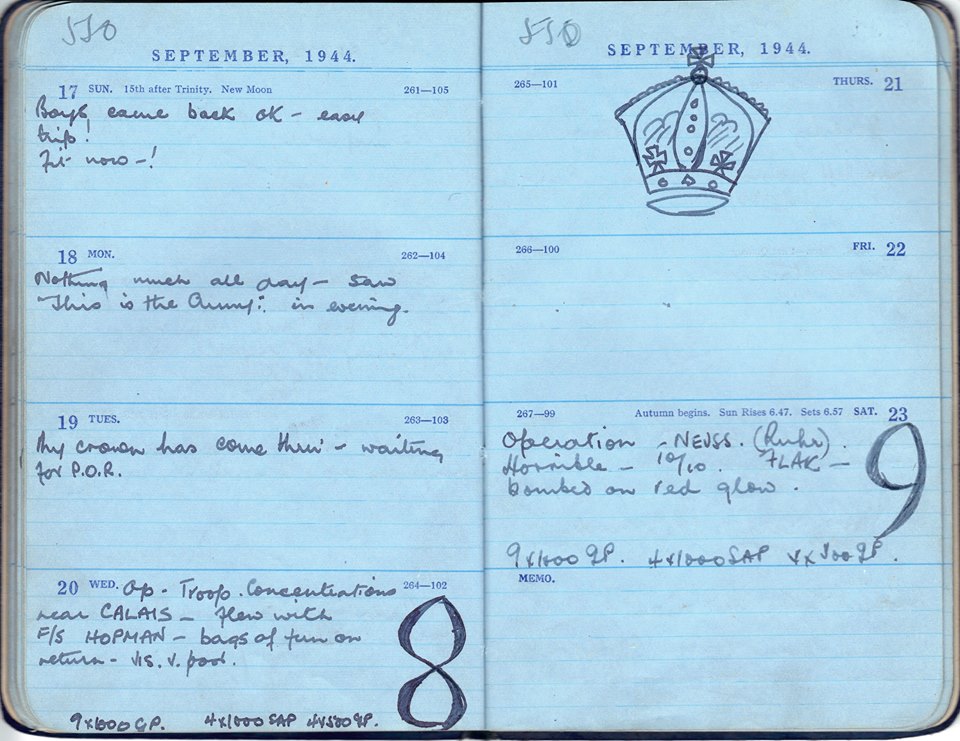 550
SEPTEMBER, 1944.
17 SUN. 15th after Trinity. New Moon 261—105
Boys came back OK – easy
trip!
Fit now –!
18 MON. 262—104
Nothing much all day – saw
"This is the Army" in evening.
19 TUES. 263—103
My crown has come thru' – waiting
for P.O.R.
20 WED. Op. Troop. Concentrations 264—102
near CALAIS – flew with
F/S HOPMAN – bags of fun on
return – vis. v. poor.
8
9x1000 GP. 4x1000 SAP 4x500 GP.
550
SEPTEMBER, 1944.
265—101 THURS. 21
266—100 FRI. 22
267—99 Autumn begins. Sun Rises 6.47. Sets 6.57 SAT. 23
Operation – NEUSS. (Ruhr).
Horrible – 10/10. FLAK –
bombed on red glow.
9
9x1000 GP. 4x1000 SAP 4x500 GP.
MEMO.